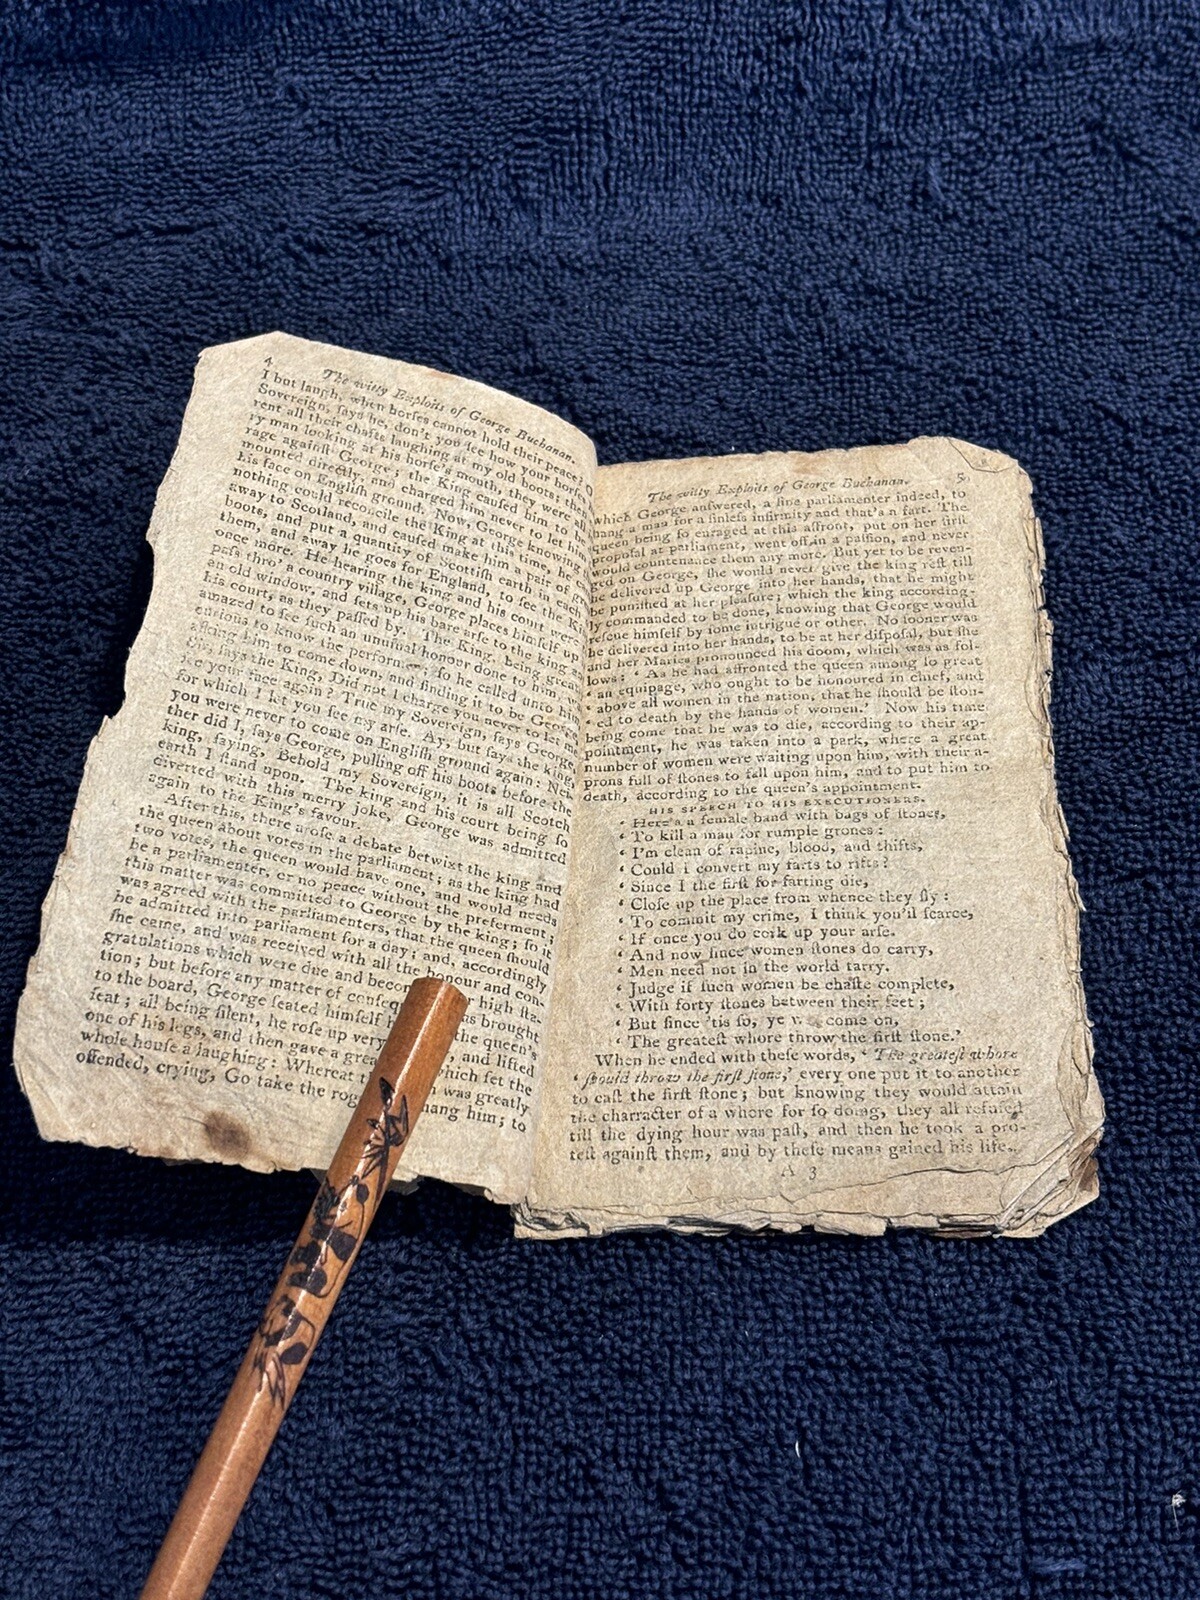 4
The witty Exploits of George Buchanan.
I but laugh, when horſes cannot hold their peace? O
Sovereign, ſays he, don't you ſee how your horſes
rent all their chafts laughing at my old boots; then
ry man looking at his horſe's mouth, they were all
rage againſt George; the King cauſed him to be
mounted directly, and charged him never to let him
his face on Engliſh ground. Now, George knowing
nothing could reconcile the King at this time, he
away to Scotland, and cauſed make him a pair of
boots, and put a quantity of Scottiſh earth in each
them, and away he goes for England, to ſee the
once more. He hearing the king and his court were
paſs thro' a country village, George places himſelf up
an old window, and ſets up his bare arſe to the king
his court, as they paſſed by. The King, being
amazed to ſee ſuch an unuſual honour done to him,
curious to know the performer. So he called unto him
aſking him to come down, and finding it to be George
ſays the King, Did not I charge you never to let me
ſee your face again? True my Sovereign, ſays George,
for which I let you ſee my arſe. Ay, but ſays the king,
you were never to come on Engliſh ground again: Nei-
ther did I, ſays George, pulling off his boots before the
king, ſaying, Behold my Sovereign, it is all Scotch
earth I ſtand upon. The king and his court being ſo
diverted with this merry joke, George was admitted
again to the King's favour.
After this, there aroſe a debate betwixt the king and
the queen about votes in the parliament; as the king had
two votes, the queen would have one, and would needs
be a parliamenter, or no peace without the preferment;
this matter was committed to George by the king; ſo it
was agreed with the parliamenters, that the queen ſhould
be admitted into parliament for a day; and, accordingly
ſhe came, and was received with all the honour and con-
gratulations which were due and high ſta-
tion; but before any matter of brought
to the board, George ſeated himſelf the queen's
ſeat; all being ſilent, he roſe up very and lifted
one of his legs, and then gave a which ſet the
whole houſe a laughing: Whereat was greatly
offended, crying, Go take the hang him; to
5
The witty Exploits of George Buchanan.
which George anſwered, a fine parliamenter indeed, to
hang a man for a ſinleſs infirmity and that's a fart. The
queen being ſo enraged at this affront, put on her firſt
propoſal at parliament, went off in a paſſion, and never
would countenance them any more. But yet to be reven-
ged on George, ſhe would never give the king reſt till
he delivered up George into her hands, that he might
be puniſhed at her pleaſure; which the king according-
ly commanded to be done, knowing that George would
reſcue himſelf by ſome intrigue or other. No ſooner was
he delivered into her hands, to be at her diſpoſal, but ſhe
and her Maries pronounced his doom, which was as fol-
lows: ‘ As he had affronted the queen among ſo great
‘ an equipage, who ought to be honoured in chief, and
‘ above all women in the nation, that he ſhould be ſton-
‘ ed to death by the hands of women.’ Now his time
being come that he was to die, according to their ap-
pointment, he was taken into a park, where a great
number of women were waiting upon him, with their a-
prons full of ſtones to fall upon him, and to put him to
death, according to the queen's appointment.
HIS SPEECH TO HIS EXECUTIONERS.
‘ Here's a female band with bags of ſtones,
‘ To kill a man for rumple grones:
‘ I'm clean of rapine, blood, and thifts,
‘ Could I convert my farts to rifts?
‘ Since I the firſt for farting die,
‘ Cloſe up the place from whence they fly:
‘ To commit my crime, I think you'll ſcarce,
‘ If once you do cork up your arſe.
‘ And now ſince women ſtones do carry,
‘ Men need not in the world tarry.
‘ Judge if ſuch women be chaſte complete,
‘ With forty ſtones between their feet;
‘ But ſince 'tis ſo, ye come on,
‘ The greateſt whore throw the firſt ſtone.’
When he ended with theſe words, ‘ The greateſt whore
‘ ſhould throw the firſt ſtone,’ every one put it to another
to caſt the firſt ſtone; but knowing they would attain
the character of a whore for ſo doing, they all refuſed
till the dying hour was paſt, and then he took a pro-
teſt againſt them, and by theſe means gained his life.
A 3